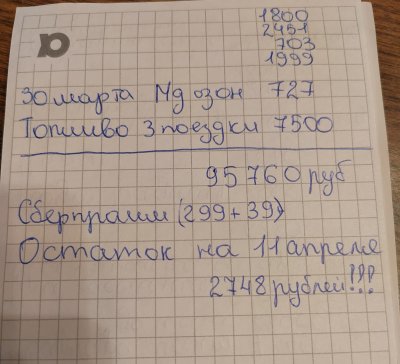 1800
2451
703
1999
30 марта Мд озон 727
Топливо 3 поездки 7500
95760 руб
Сберпрайм (299+39)
Остаток на 11 апреля
2748 рублей!!!